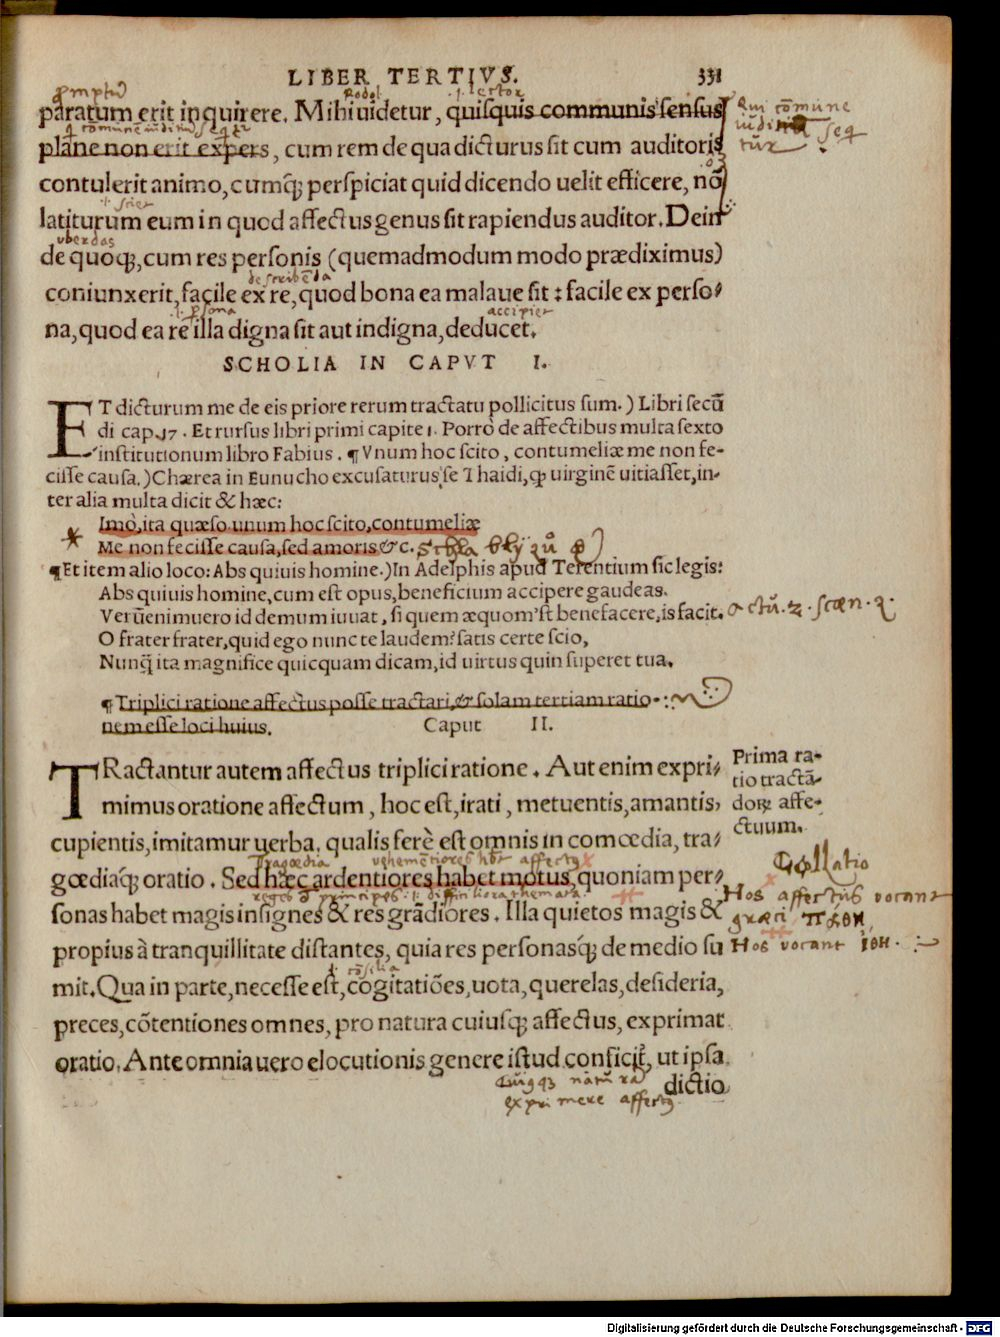 LIBER TERTIVS. 331
paratum erit inquirere. Mihi uidetur, quisquis communis sensus
plane non erit expers, cum rem de qua dicturus sit cum auditoris
contulerit animo, cumq́; perspiciat quid dicendo uelit efficere, nō
latiturum eum in quod affectus genus sit rapiendus auditor. Dein
de quoq́;, cum res personis (quemadmodum modo prædiximus)
coniunxerit, facile ex re, quod bona ea malaue sit: facile ex perso⸗
na, quod ea re illa digna sit aut indigna, deducet.
SCHOLIA IN CAPVT I.
ET dicturum me de eis priore rerum tractatu pollicitus sum.) Libri secū
di cap.17. Et rursus libri primi capite 1. Porrò de affectibus multa sexto
institutionum libro Fabius. ¶ Vnum hoc scito, contumeliæ me non fe-
cisse causa.) Chærea in Eunucho excusaturus se Thaidi, q̃ uirginē uitiasset, in-
ter alia multa dicit & hæc:
Imò, ita quæso unum hoc scito, contumeliæ
Me non fecisse causa, sed amoris &c.
¶ Et item alio loco: Abs quiuis homine.) In Adelphis apud Terentium sic legis:
Abs quiuis homine, cum est opus, beneficium accipere gaudeas.
Verūenimuero id demum iuuat, si quem æquom'st benefacere, is facit. actū. 2. scæn. 2.
O frater frater, quid ego nunc te laudem? satis certe scio,
Nunq̃ ita magnifice quicquam dicam, id uirtus quin superet tua.
¶ Triplici ratione affectus posse tractari, & solam tertiam ratio-
nem esse loci huius. Caput II.
TRactantur autem affectus triplici ratione. Aut enim expri⸗
mimus oratione affectum, hoc est, irati, metuentis, amantis,
cupientis, imitamur uerba, qualis ferè est omnis in comœdia, tra⸗
gœdiaq́; oratio. Sed hæc ardentiores habet motus, quoniam per⸗
sonas habet magis insignes & res grādiores. Illa quietos magis &
propius à tranquillitate distantes, quia res personasq́; de medio su
mit. Qua in parte, necesse est, cogitatiōes, uota, querelas, desideria,
preces, cōtentiones omnes, pro natura cuiusq́; affectus, exprimat
oratio. Ante omnia uero elocutionis genere istud conficit, ut ipsa
dictio
Prima ra-
tio tractā-
dorꝝ affe-
ctuum.
Collatio
Hos affectus vocant
græci πάθη
Hos vocant ἤθη.